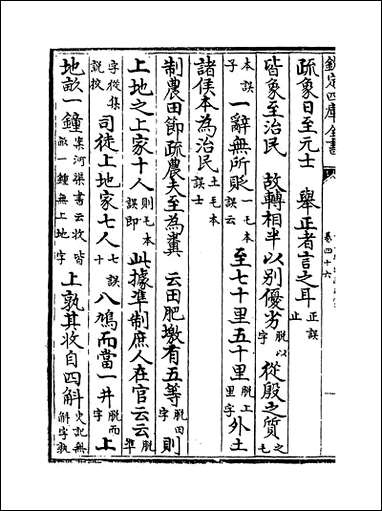 欽定四庫全書 卷四十六
疏象日至元士 舉正者言之耳正誤止
皆象至治民 故轉相半以別優劣脫以字從殷之質之毛
本誤子一辭無所貶一毛本誤云至七十里五十里脫上里字外土
諸侯本為治民土毛本誤士
制農田節疏農夫至為糞 云田肥墽有五等脫田字則
上地之上家十人則毛本誤即此據準制庶人在官云云脫準
字從集說校司徒上地家七人七誤十八鳩而當一井脫而字上
地畝一鍾案河渠書云收皆畝一鍾無上地字上孰其收自四斛史記無斛字孰